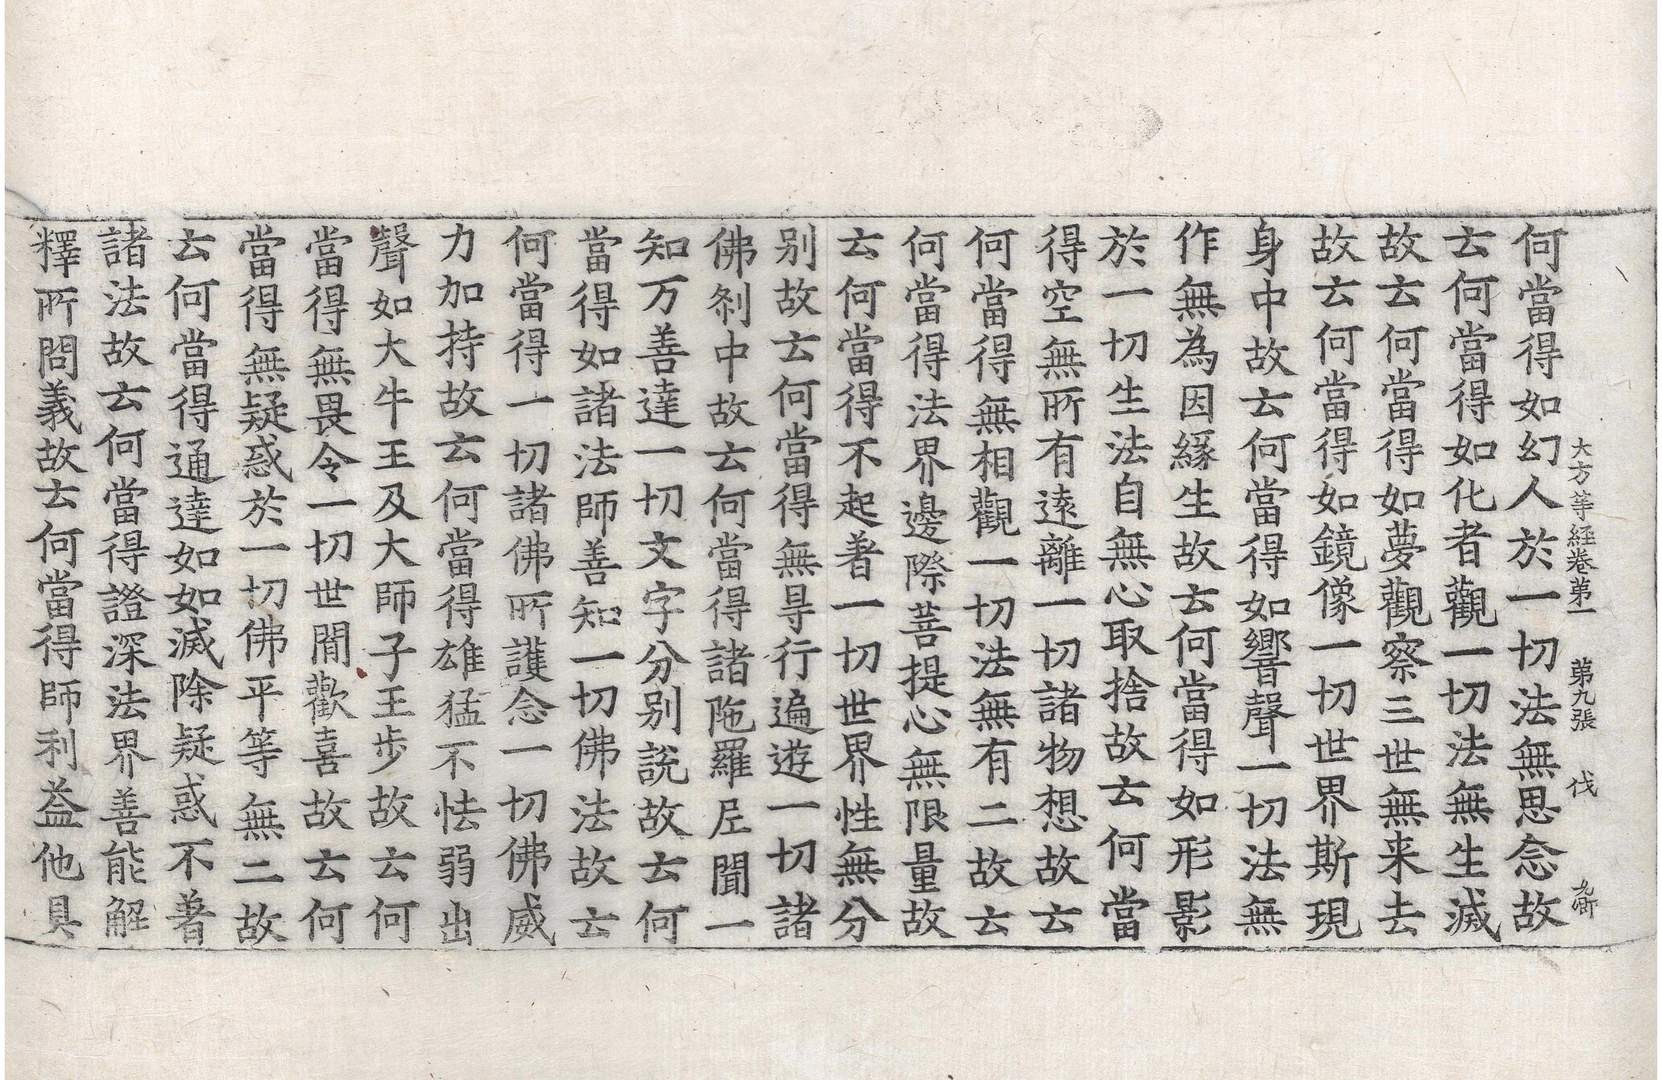 大方等経卷第一　第九張　伐
何當得如幻人於一切法無思念故
云何當得如化者觀一切法無生滅
故云何當得如夢觀察三世無来去
故云何當得如鏡像一切世界斯現
身中故云何當得如響聲一切法無
作無為因緣生故云何當得如形影
於一切生法自無心取捨故云何當
得空無所有遠離一切諸物想故云
何當得無相觀一切法無有二故云
何當得法界邊際菩提心無限量故
云何當得不起著一切世界性無分
別故云何當得無㝵行遍遊一切諸
佛剎中故云何當得諸陁羅尼聞一
知万善達一切文字分別說故云何
當得如諸法師善知一切佛法故云
何當得一切諸佛所護念一切佛威
力加持故云何當得雄猛不怯弱出
聲如大牛王及大師子王步故云何
當得無畏令一切世間歡喜故云何
當得無疑惑於一切佛平等無二故
云何當得通達如如滅除疑惑不著
諸法故云何當得證深法界善能解
釋所問義故云何當得師利益他具